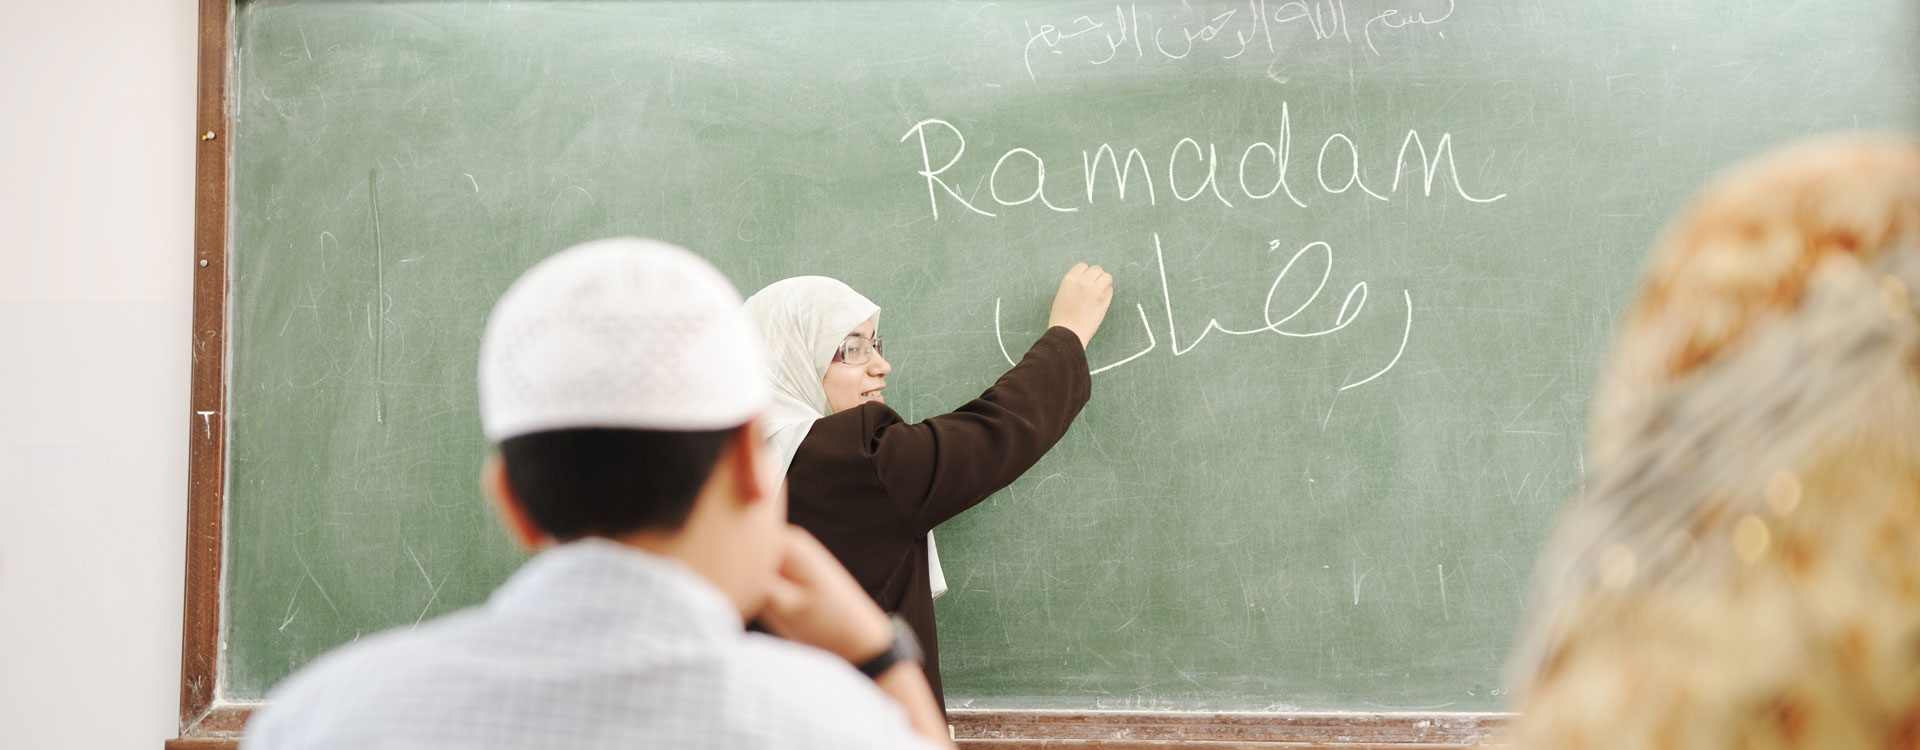 بسم الله الرحمن الرحيم
Ramadam
رمضان